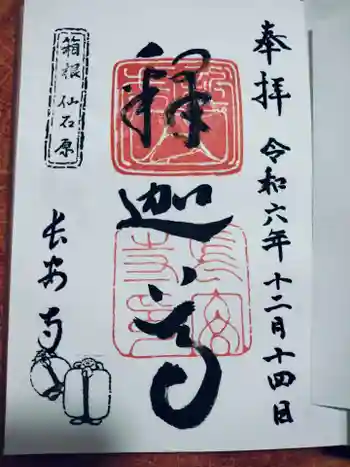 奉拝
令和六年十二月十四日
釋迦尊
箱根 仙石原
長安寺